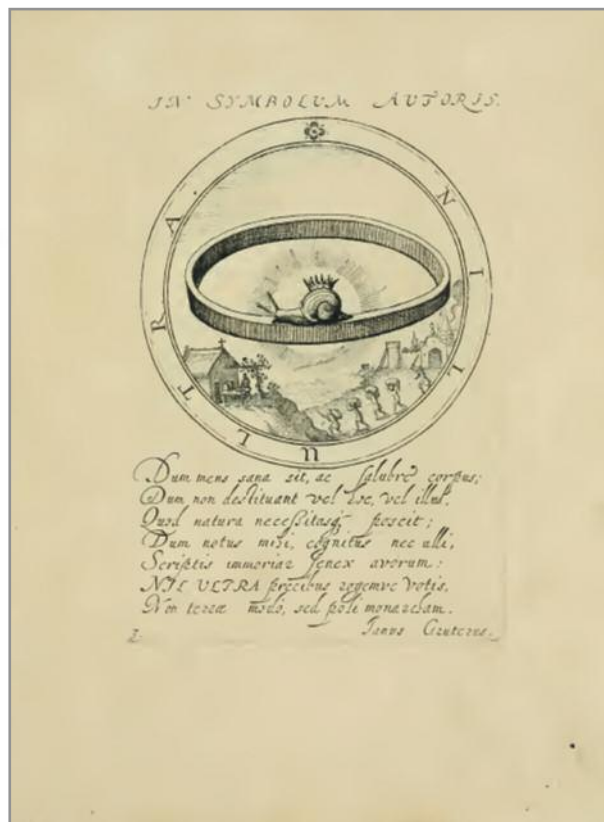 IN SYMBOLVM AUTORIS.
NIL ULTRA.
Dum mens sana sit, ac salubre corpus;
Dum non destituant vel hoc, vel illud,
Quod natura necessitasq; poscit;
Dum notus mihi, cognitus nec ulli,
Scriptis immoriar senex avorum:
NIL ULTRA precibus rogemve votis,
Non terræ modò, sed poli monarcham.
Ianus Gruterus.